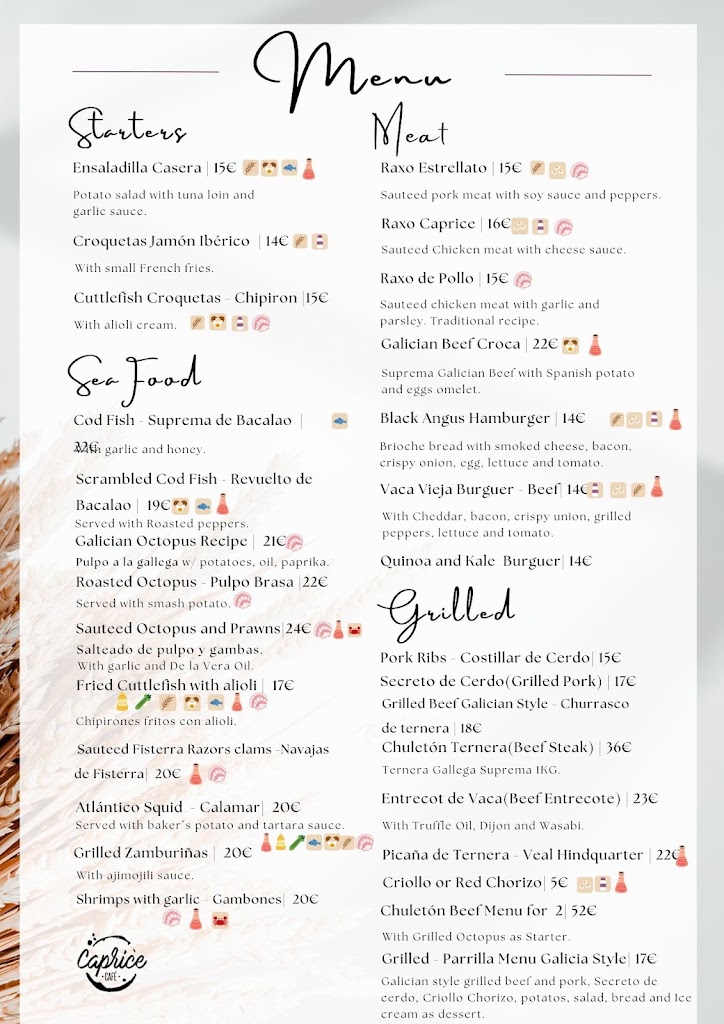 Menu
Starters
Ensaladilla Casera | 15€
Potato salad with tuna loin and
garlic sauce.
Croquetas Jamón Ibérico | 14€
With small French fries.
Cuttlefish Croquetas - Chipiron |15€
With alioli cream.
Sea Food
Cod Fish - Suprema de Bacalao |
22€
With garlic and honey.
Scrambled Cod Fish - Revuelto de
Bacalao | 19€
Served with Roasted peppers.
Galician Octopus Recipe | 21€
Pulpo a la gallega w/ potatoes, oil, paprika.
Roasted Octopus - Pulpo Brasa |22€
Served with smash potato.
Sauteed Octopus and Prawns|24€
Salteado de pulpo y gambas.
With garlic and De la Vera Oil.
Fried Cuttlefish with alioli | 17€
Chipirones fritos con alioli.
Sauteed Fisterra Razors clams -Navajas
de Fisterra| 20€
Atlántico Squid - Calamar| 20€
Served with baker´s potato and tartara sauce.
Grilled Zamburiñas | 20€
With ajimojili sauce.
Shrimps with garlic - Gambones| 20€
Caprice
CAFÉ
Meat
Raxo Estrellato | 15€
Sauteed pork meat with soy sauce and peppers.
Raxo Caprice | 16€
Sauteed Chicken meat with cheese sauce.
Raxo de Pollo | 15€
Sauteed chicken meat with garlic and
parsley. Traditional recipe.
Galician Beef Croca | 22€
Suprema Galician Beef with Spanish potato
and eggs omelet.
Black Angus Hamburger | 14€
Brioche bread with smoked cheese, bacon,
crispy onion, egg, lettuce and tomato.
Vaca Vieja Burguer - Beef| 14€
With Cheddar, bacon, crispy union, grilled
peppers, lettuce and tomato.
Quinoa and Kale Burguer| 14€
Grilled
Pork Ribs - Costillar de Cerdo| 15€
Secreto de Cerdo(Grilled Pork) | 17€
Grilled Beef Galician Style - Churrasco
de ternera | 18€
Chuletón Ternera(Beef Steak) | 36€
Ternera Gallega Suprema 1KG.
Entrecot de Vaca(Beef Entrecote) | 23€
With Truffle Oil, Dijon and Wasabi.
Picaña de Ternera - Veal Hindquarter | 22€
Criollo or Red Chorizo| 5€
Chuletón Beef Menu for 2| 52€
With Grilled Octopus as Starter.
Grilled - Parrilla Menu Galicia Style| 17€
Galician style grilled beef and pork, Secreto de
cerdo, Criollo Chorizo, potatos, salad, bread and Ice
cream as dessert.